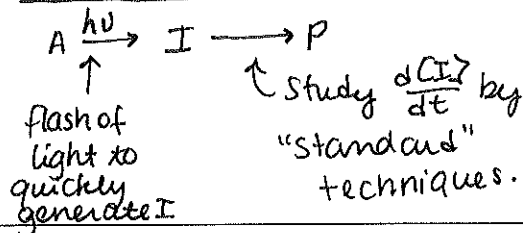 A hν→ I ⟶ P
↑ flash of light to quickly generate I
↑ Study d[I]/dt by "standard" techniques.